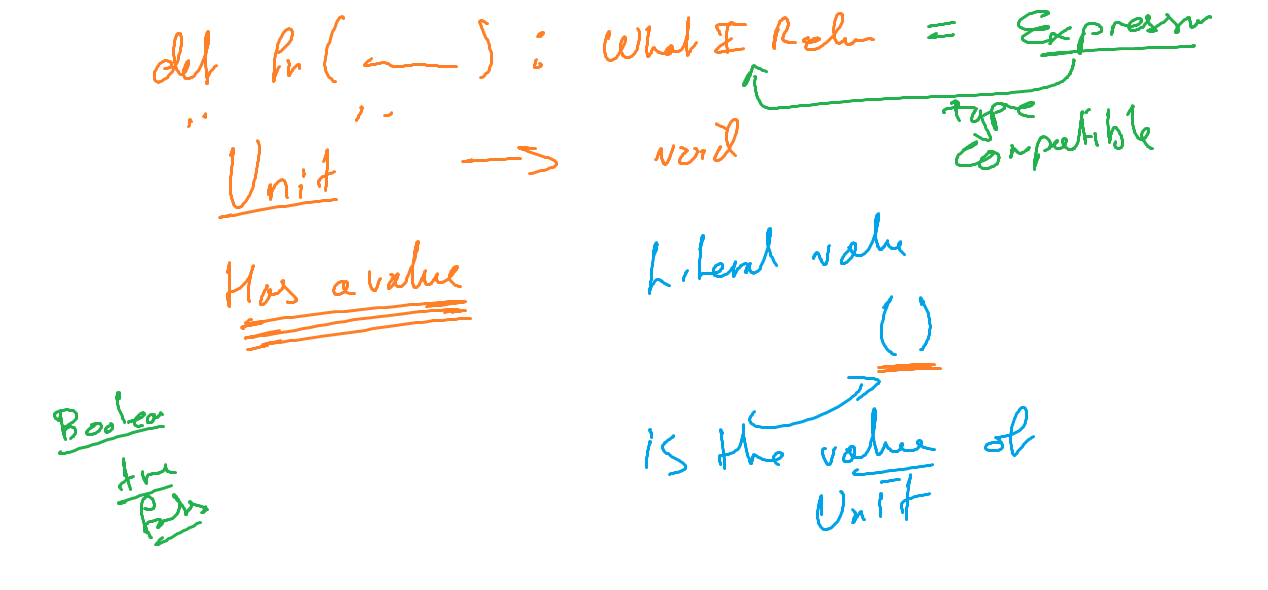 def fn( ___ ) : What I Return = Expression
type
compatible
Unit → void
Has a value
Literal value
()
is the value of
Unit
Boolean
true
false